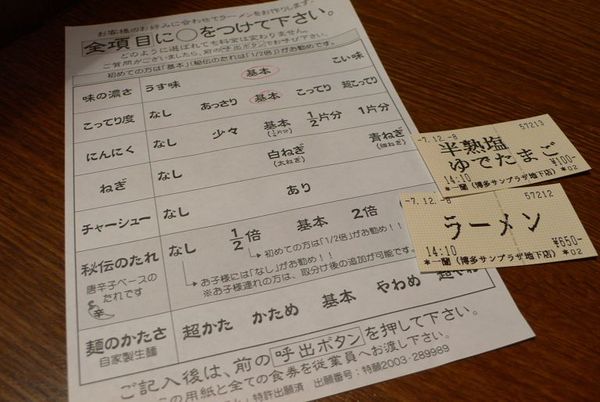 お客様のお好みに合わせてラーメンをお作りします。
全項目に○をつけて下さい。
どのように選ばれても料金は変わりません。
ご質問がございましたら、前の呼出ボタンでお呼び下さい。
初めての方は「基本」(秘伝のたれは「1/2倍」)がお勧めです。
味の濃さ うす味 基本 こい味
こってり度 なし あっさり 基本 こってり 超こってり
にんにく なし 少々 基本 (1/4片分) 1/2片分 1片分
ねぎ なし 白ねぎ (太ねぎ) 青ねぎ (細ねぎ)
チャーシュー なし あり
秘伝のたれ なし 1/2倍 基本 2倍
唐辛子ベースの
たれです
辛
初めての方は「1/2倍」がお勧め!!
お子様には「なし」がお勧め!!
※お子様連れの方は、取分け後の追加が可能です。
麺のかたさ 超かた かため 基本 やわめ
自家製生麺
ご記入後は、前の呼出ボタンを押して下さい。
この用紙と全ての食券を従業員へお渡し下さい。
特許出願済 出願番号:特願2003-289989
-7.12.-8 57213
半熟塩
ゆでたまご
14:10 ¥100-
*一蘭(博多サンプラザ地下店) *02
-7.12.-8 57212
ラーメン
14:10 ¥650-
*一蘭(博多サンプラザ地下店) *02